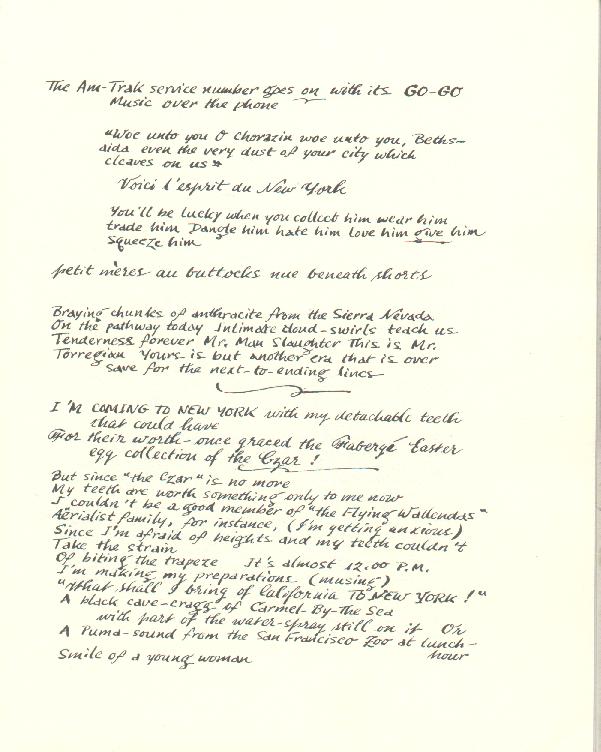 The Am-Trak service number goes on with its GO-GO
Music over the phone
"Woe unto you O Chorazin woe unto you, Beths-
aida even the very dust of your city which
cleaves on us"
Voici l'esprit du New York
You'll be lucky when you collect him wear him
trade him Dangle him hate him love him give him
squeeze him
petit mères au buttocks nue beneath shorts
Braying chunks of anthracite from the Sierra Nevada
On the pathway today Intimate cloud-swirls teach us
Tenderness forever Mr. Man Slaughter This is Mr.
Torregian Yours-is but another era that is over
save for the next-to-ending lines
I'M COMING TO NEW YORK with my detachable teeth
that could have
For their worth-once graced the Fabergé Easter
egg collection of the Czar!
But since "the Czar" is no more
My teeth are worth something only to me now
I couldn't be a good member of "the Flying Wallendas"
Aerialist family, for instance, (I'm getting anxious)
Since I'm afraid of heights and my teeth couldn't
Take the strain
Of biting the trapeze It's almost 12.00 P.M.
I'm making my preparations (musing)
"What shall I bring of California TO NEW YORK!"
A black cave-cragg of Carmel-By-The Sea
with part of the water-spray still on it Or
A Puma-sound from the San Francisco Zoo at lunch-
hour
Smile of a young woman